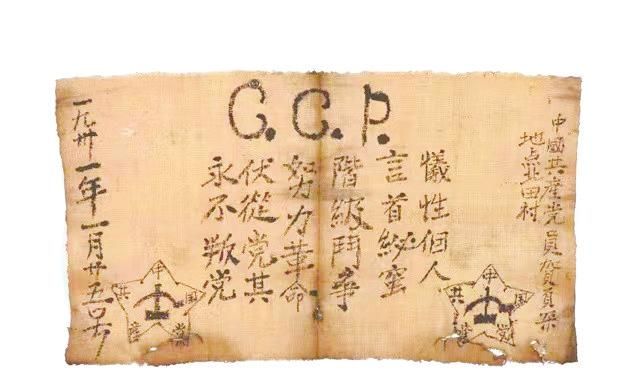 C.C.P.
中國共產党員賀頁朵
地点北田村
犧性個人
言首秘蜜
階級鬥爭
努力革命
伏從党其
永不叛党
一九卅一年一月廿五号
中国共產黨
中国共產黨